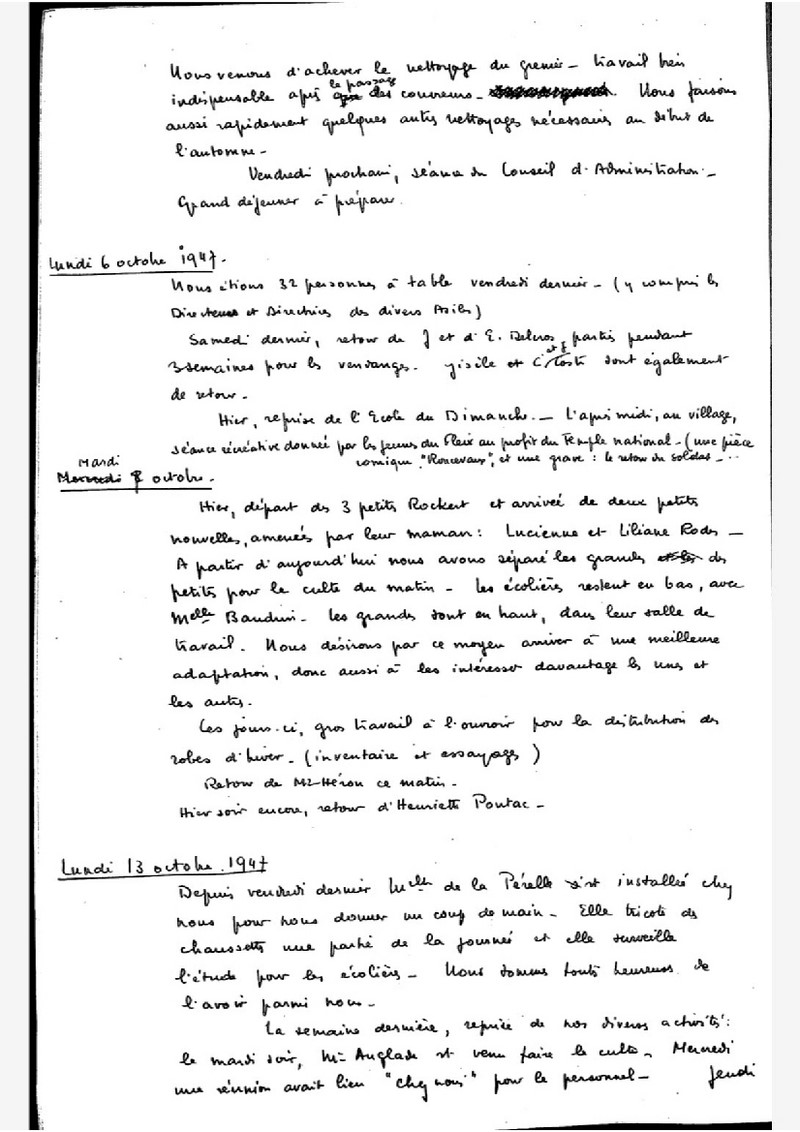 Nous venons d'achever le nettoyage du grenier - travail bien
indispensable après le passage des couvreurs - Nous faisons
aussi rapidement quelques autres nettoyages nécessaires au début de
l'automne -
Vendredi prochain, séance du Conseil d'Administration. -
Grand déjeuner à préparer.
Lundi 6 octobre 1947.
Nous étions 32 personnes à table vendredi dernier - (y compris les
Directeurs et Directrices des divers Asiles)
Samedi dernier, retour de J et d'E. Delcros, parties pendant
3 semaines pour les vendanges. Gisèle et C. et J. Costi sont également
de retour -
Hier, reprise de l'Ecole du Dimanche. - L'après midi, au village,
séance récréative donnée par les jeunes du Fleix au profit du Temple national - (une pièce
comique, "Roncevaux", et une grave : le retour du soldat - ...
Mardi
Mercredi 8 octobre.
Hier, départ des 3 petits Rockert et arrivée de deux petites
nouvelles, amenées par leur maman : Lucienne et Liliane Rodes -
A partir d'aujourd'hui nous avons séparé les grandes des
petites pour le culte du matin - Les écolières restent en bas, avec
Melle Bauduin. Les grandes sont en haut, dans leur salle de
travail. Nous désirons par ce moyen arriver à une meilleure
adaptation, donc aussi à les intéresser davantage les unes et
les autres.
Ces jours-ci, gros travail à l'ouvroir pour la distribution des
robes d'hiver - (inventaire et essayages)
Retour de Mz Héron ce matin -
Hier soir encore, retour d'Henriette Pontac -
Lundi 13 octobre. 1947
Depuis vendredi dernier Melle de la Pérelle s'est installée chez
nous pour nous donner un coup de main - Elle tricote des
chaussettes une partie de la journée et elle surveille
l'étude pour les écolières - Nous sommes toutes heureuses de
l'avoir parmi nous -
La semaine dernière, reprise de nos diverses activités :
le mardi soir, Mr Anglade est venu faire le culte - Mercredi
une réunion avait lieu "chez nous" pour le personnel - Jeudi